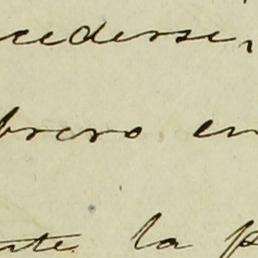 cederse,
brero en
nte la p